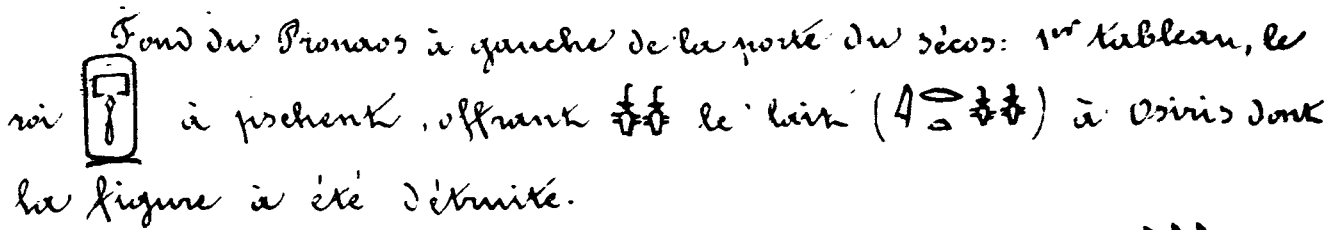 Fond du Pronaos à gauche de la porte du sécos: 1er tableau, le
roi 𓉐𓂋 à pschent, offrant le lait ( ) à Osiris dont
la figure à été détruite.